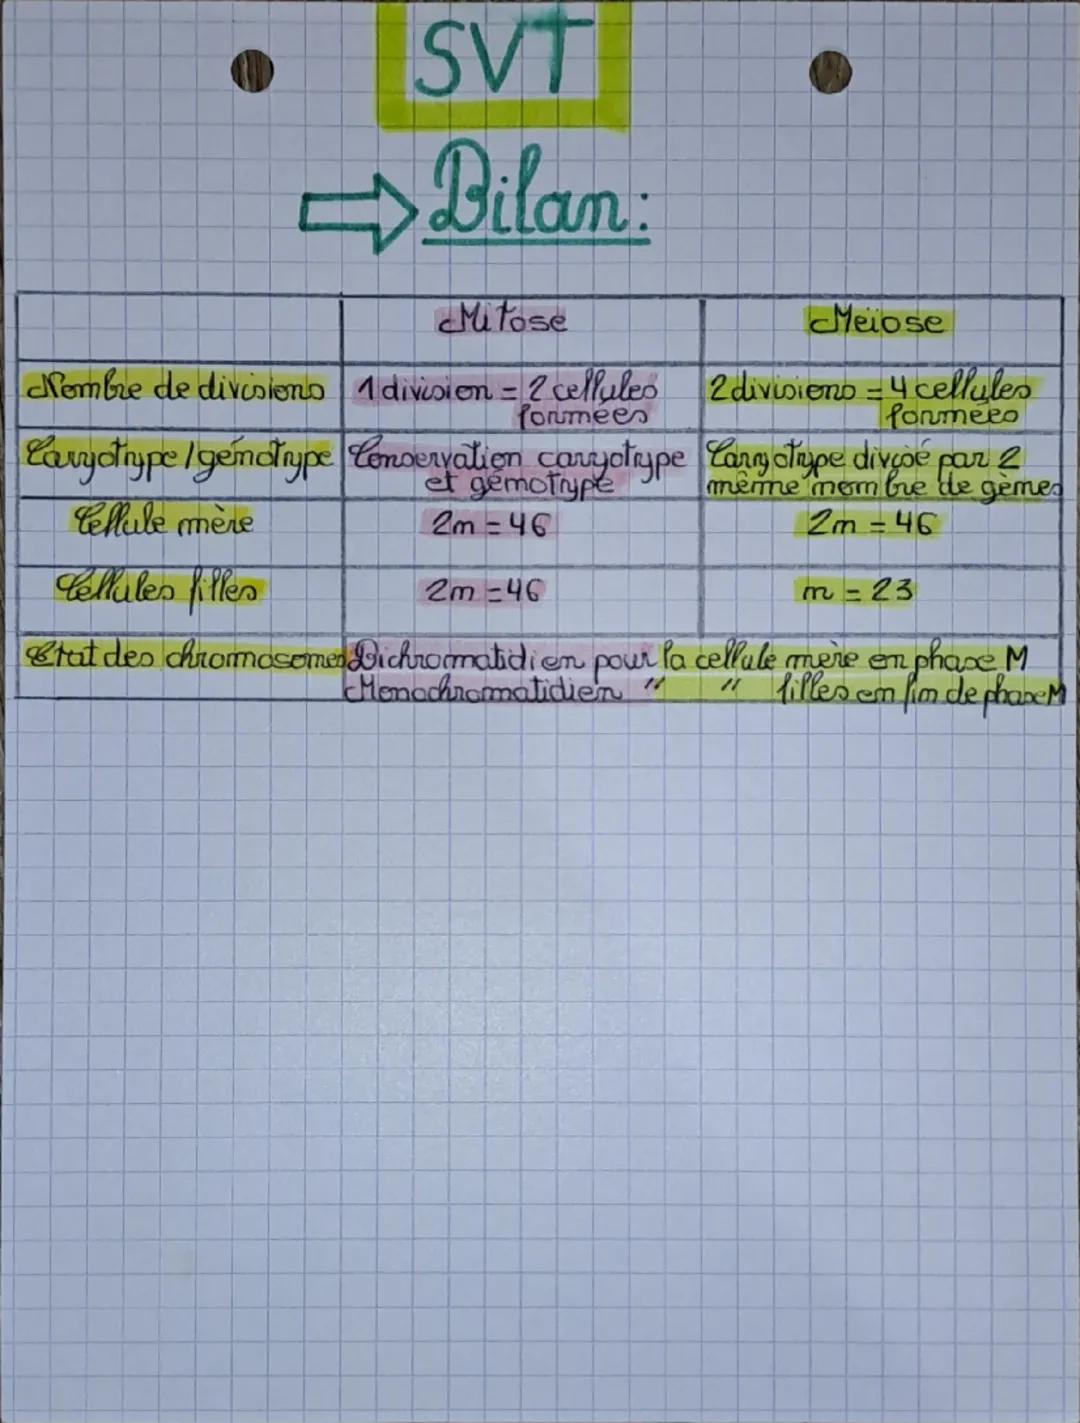 SVT
⇒ Bilan:
Mitose Meïose
Nombre de divisions 1 division = 2 cellules formées 2 divisions = 4 cellules formées
Caryotype / génotype Conservation caryotype et génotype Caryotype divisé par 2 même nombre de gènes
Cellule mère 2n = 46 2n = 46
Cellules filles 2n = 46 n = 23
Etat des chromosomes Dichromatidien pour la cellule mère en phase M
Monochromatidien " " filles en fin de phase M